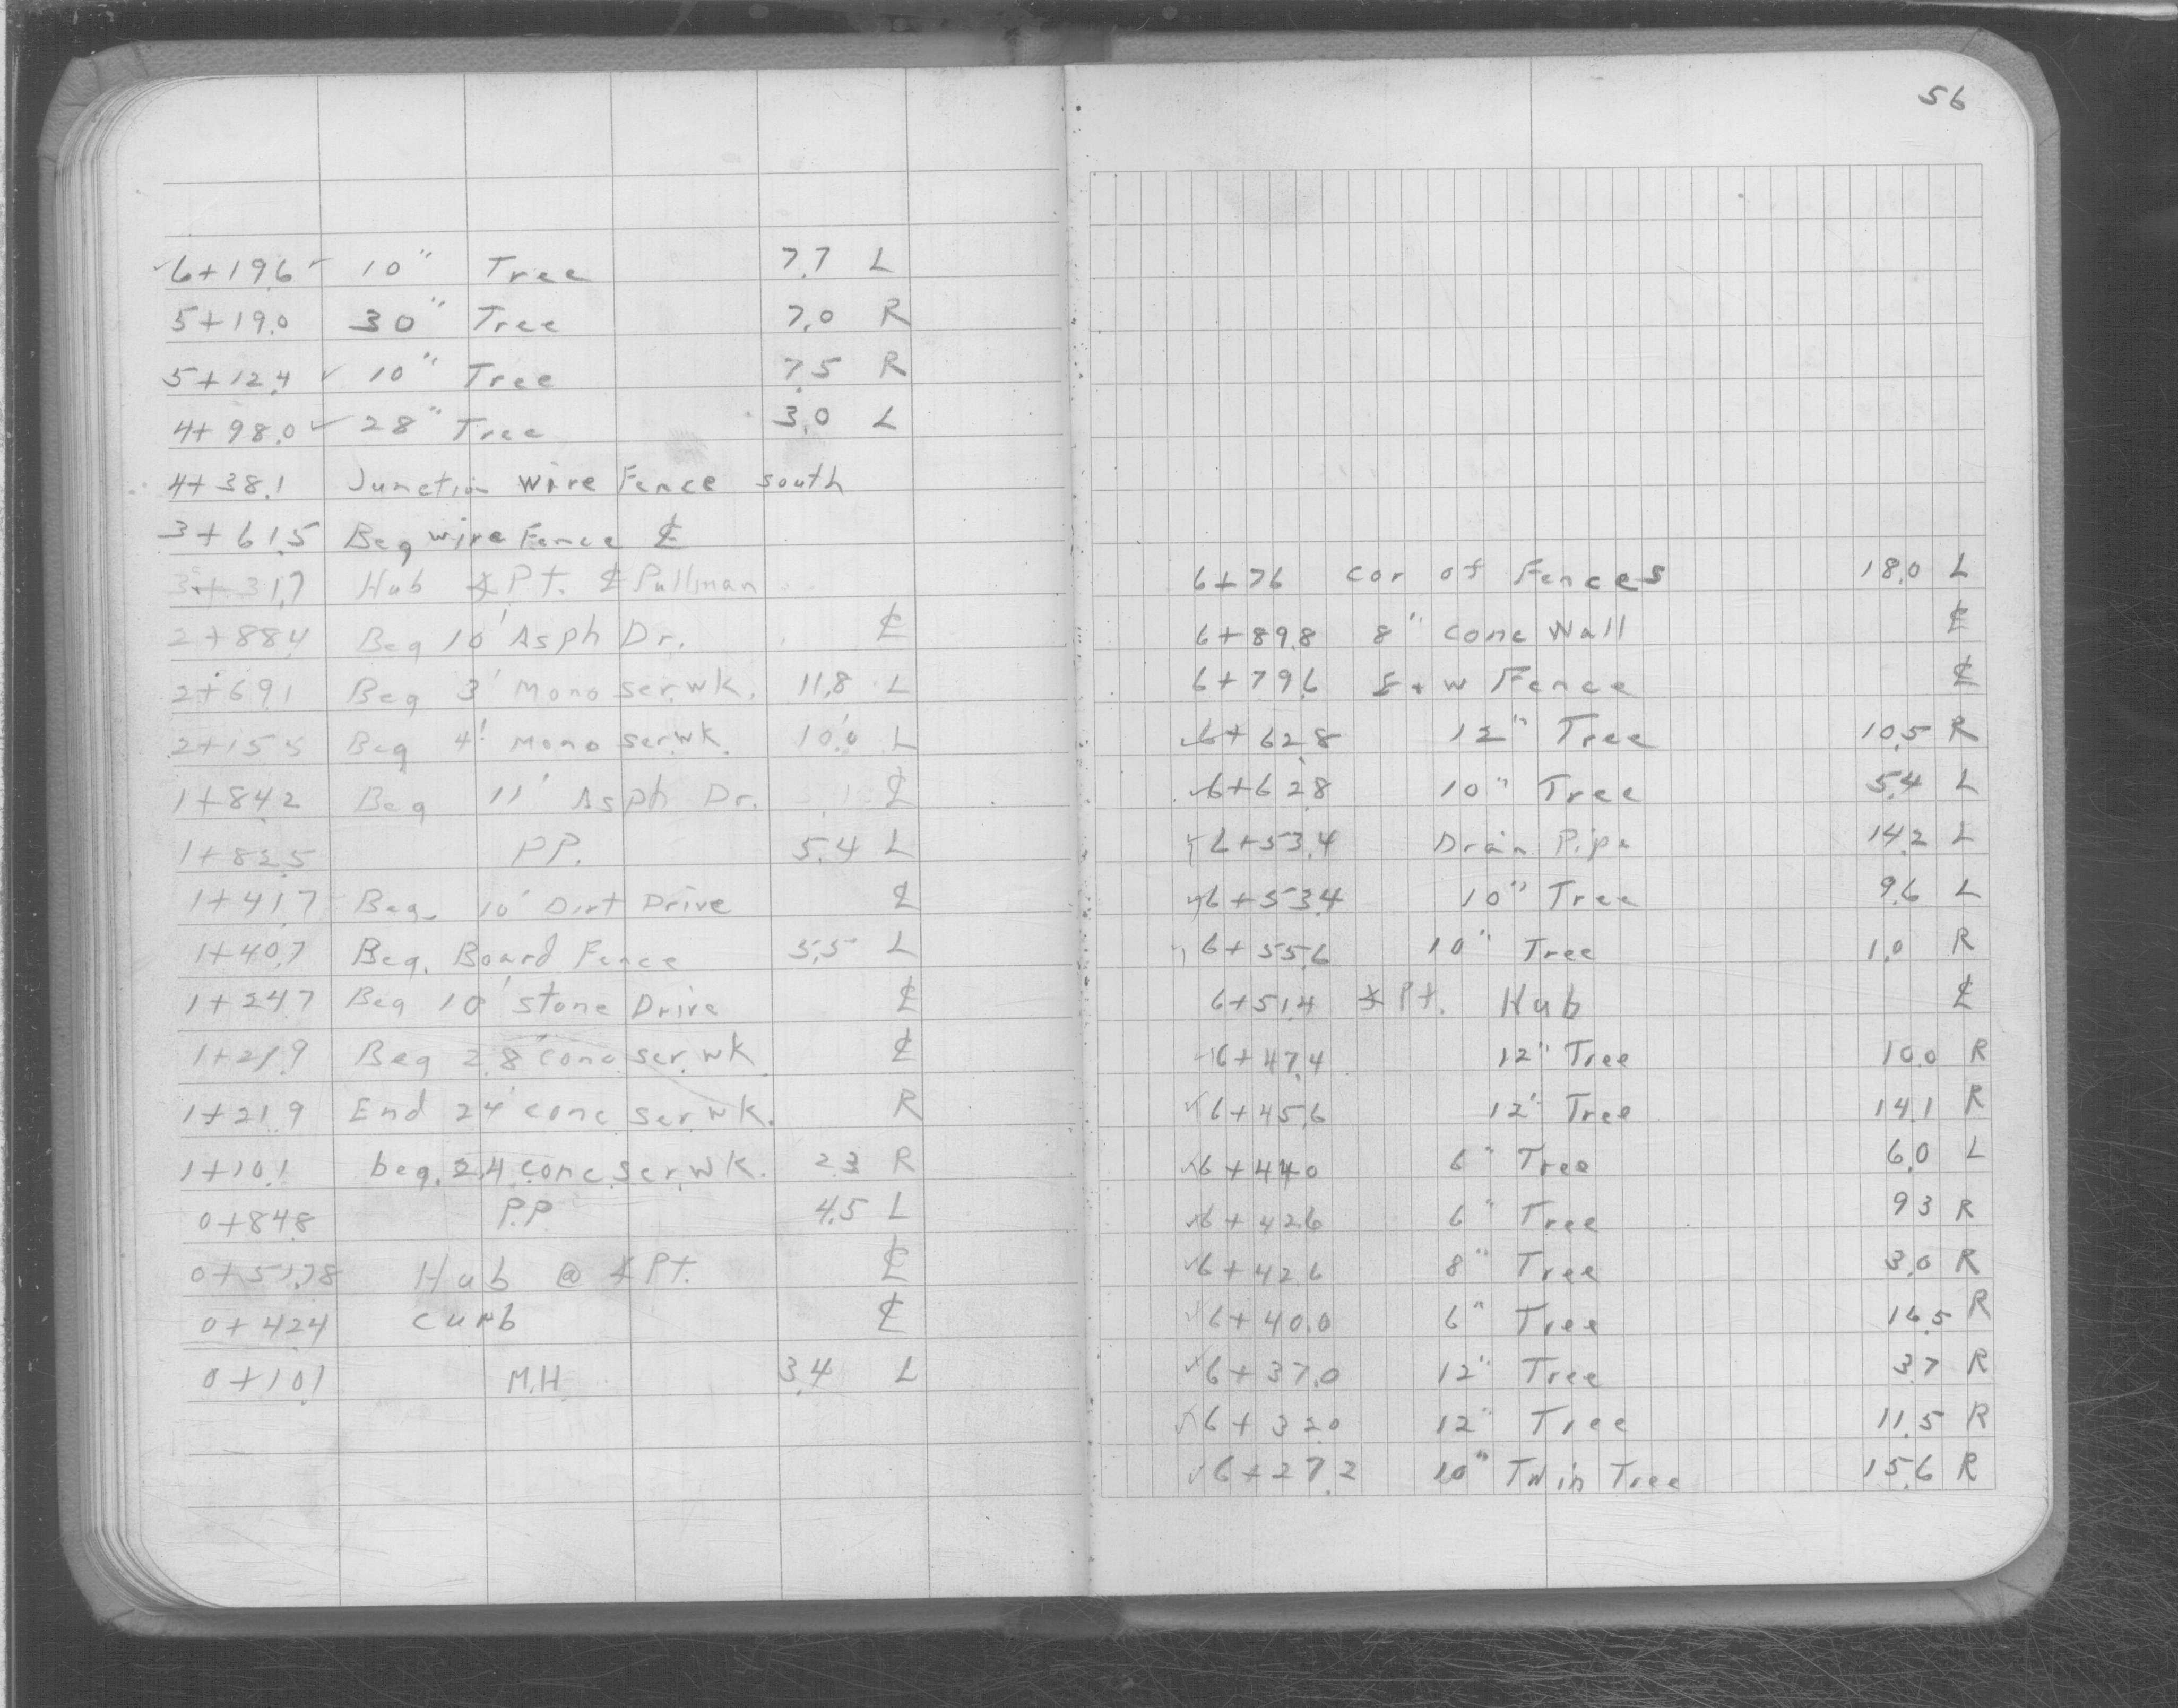 56
✓6+19.6 ✓ 10" Tree 7.7 L
5+19.0 30" Tree 7.0 R
5+12.4 ✓ 10" Tree 7.5 R
4+98.0 ✓ 28" Tree 3.0 L
4+38.1 Junction wire Fence south
3+61.5 Beg wire Fence ℄
3+31.7 Hub ∡ Pt. ℄ Pullman
2+88.4 Beg 10' Asph Dr. ℄
2+69.1 Beg 3' Mono ser. wk. 11.8 L
2+15.5 Beg 4' Mono ser. wk. 10.0 L
1+84.2 Beg 11' Asph Dr. ℄
1+82.5 P.P. 5.4 L
1+41.7 Beg. 10' Dirt Drive ℄
1+40.7 Beg. Board Fence 5.5 L
1+24.7 Beg 10' stone Drive ℄
1+21.9 Beg 2.8' conc ser. wk. ℄
1+21.9 End 2.4' conc ser. wk. R
1+10.1 beg. 2.4 conc ser. wk. 2.3 R
0+84.8 P.P 4.5 L
0+51.78 Hub @ ∡ Pt. ℄
0+42.4 curb ℄
0+10.1 M.H. 3.4 L
6+76 cor of Fences 18.0 L
6+89.8 8" conc Wall ℄
6+79.6 E+W Fence ℄
✓6+62.8 12" Tree 10.5 R
✓6+62.8 10" Tree 5.4 L
✓6+53.4 Drain Pipe 14.2 L
✓6+53.4 10" Tree 9.6 L
✓6+55.6 10" Tree 1.0 R
6+51.4 ∡ Pt. Hub ℄
✓6+47.4 12" Tree 10.0 R
✓6+45.6 12" Tree 14.1 R
✓6+44.0 6" Tree 6.0 L
✓6+42.6 6" Tree 9.3 R
✓6+42.6 8" Tree 3.0 R
✓6+40.0 6" Tree 16.5 R
✓6+37.0 12" Tree 3.7 R
✓6+32.0 12" Tree 11.5 R
✓6+27.2 10" Twin Tree 15.6 R